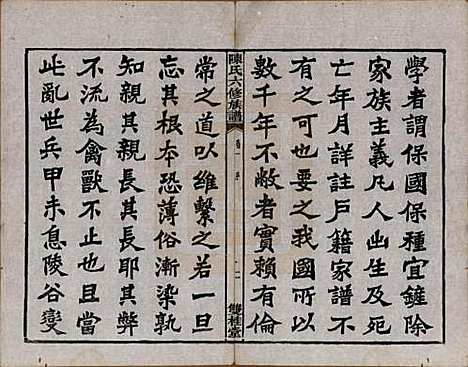 學者謂保國保種宜鏟除
家族主義凡人出生及死
亡年月詳註戶籍家譜不
有之可也要之我國所以
數千年不敝者實賴有倫
陳氏六修族譜
卷一 序
雙桂堂
常之道以維繫之若一旦
忘其根本恐薄俗漸染孰
知親其親長其長耶其弊
不流為禽獸不止也且當
此亂世兵甲未息陵谷變